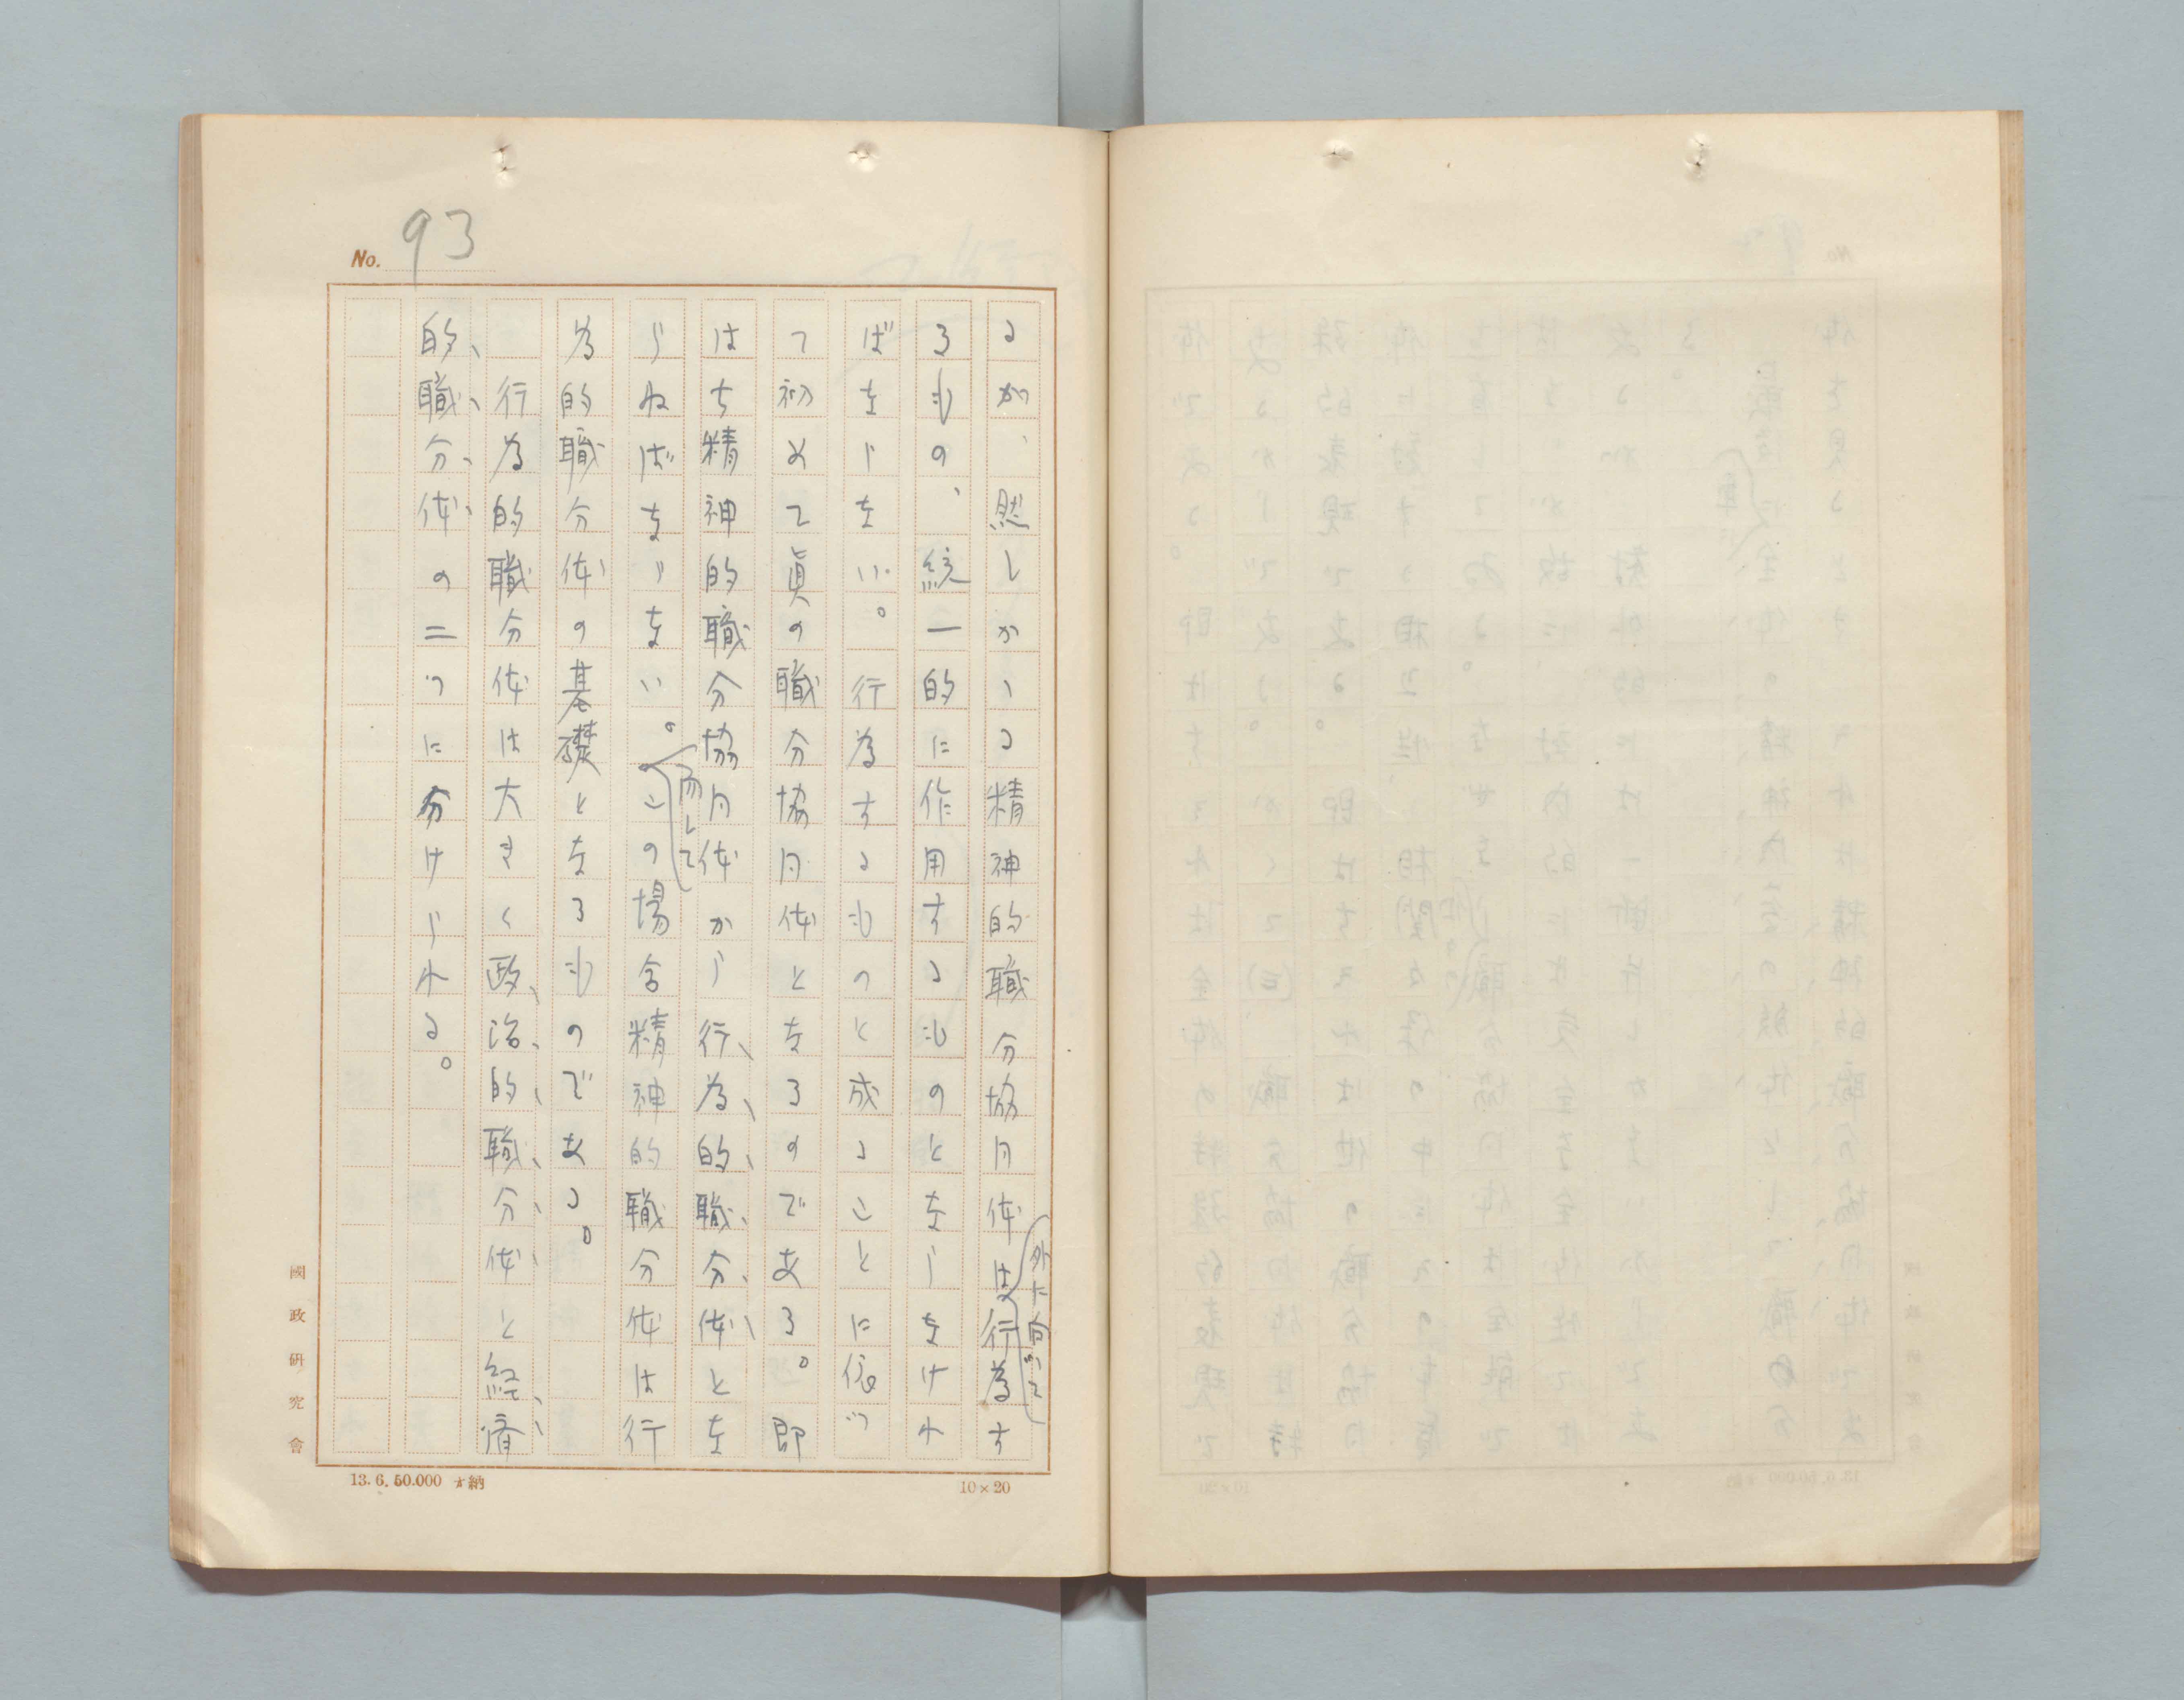 No. 93
るが、然しかゝる精神的職分協同体は(外に向つて)行為す
るもの、統一的に作用するものとならなけれ
ばならない。行為するものと成ることに依つ
て初めて真の職分協同体となるのである。即
はち精神的職分協同体から行為的職分体とな
らねばならない。(而して)この場合精神的職分体は行
為的職分体の基礎となるものである。
行為的職分体は大きく政治的職分体と経済
的職分体の二つに分けられる。
國政研究會
13. 6. 50.000 納
10×20